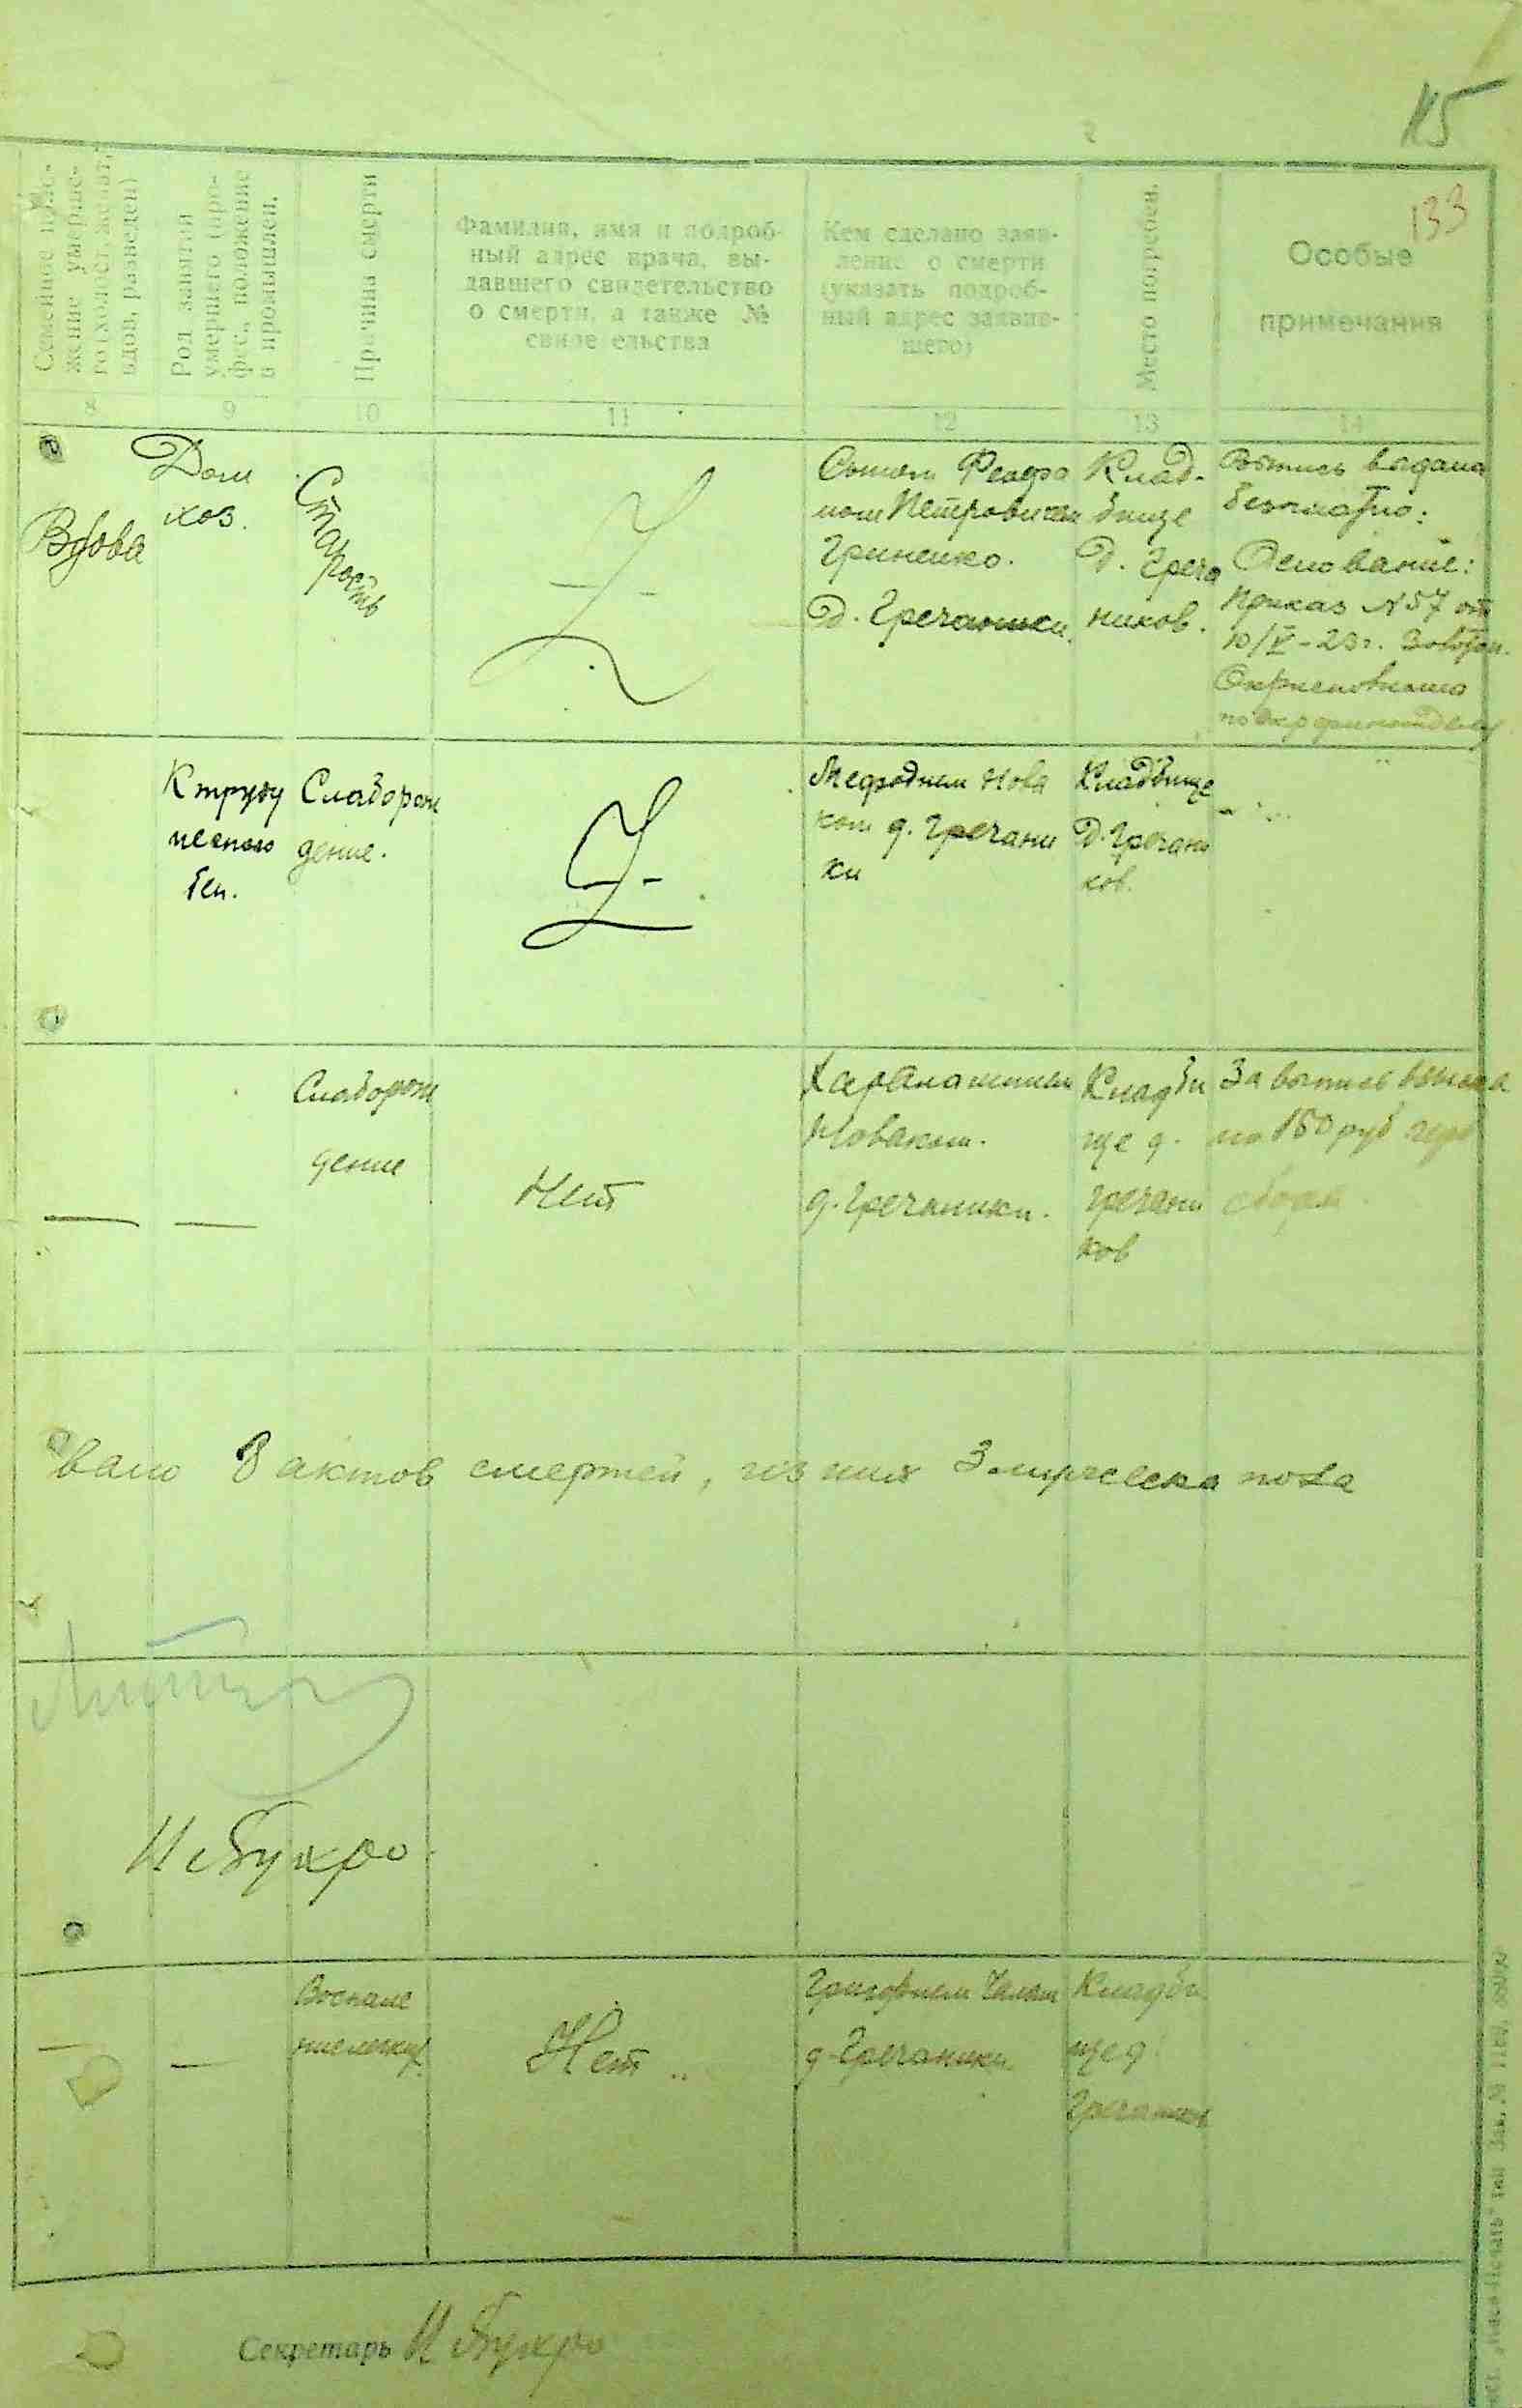 115
133
Семейное положе-
жение умерше-
го (холост, женат,
вдов, разведен)
Род занятия
умершего (про-
фес., положение
в промышлен.
Причина смерти
Фамилия, имя и подроб-
ный адрес врача, вы-
давшего свидетельство
о смерти, а также №
свиде ельства
Кем сделано заяв-
ление о смерти
(указать подроб-
ный адрес заявив-
шего)
Место погребен.
Особые
примечания
8 9 10 11 12 13 14
Вдова
Дом
хоз.
Старость
Сыном Феодро
ном Петровичем
Гриненко.
Д. Гречаники.
Клад-
бище
Д. Греча
ников.
Выпись выдана
безплатно:
Основание:
Приказ №57 от
10/V-23г.
К труду
неспосо
бен.
Слаборож
дение.
Мефодием Нова
ком д. Гречани
ки
Кладбище
Д. Гречани
ков.
Слаборож
дение
Нет
Харлампием
Новаком.
д. Гречаники.
Кладби
ще д.
Гречани
ков
За выпись взыска
но 150 руб герб
сбора.
вано 8 актов смертей, из них 3 мужческа пола
Воспале
ние легких
Нет
Григорием
д. Гречаники
Кладби
ще д
Гречаников
Секретарь